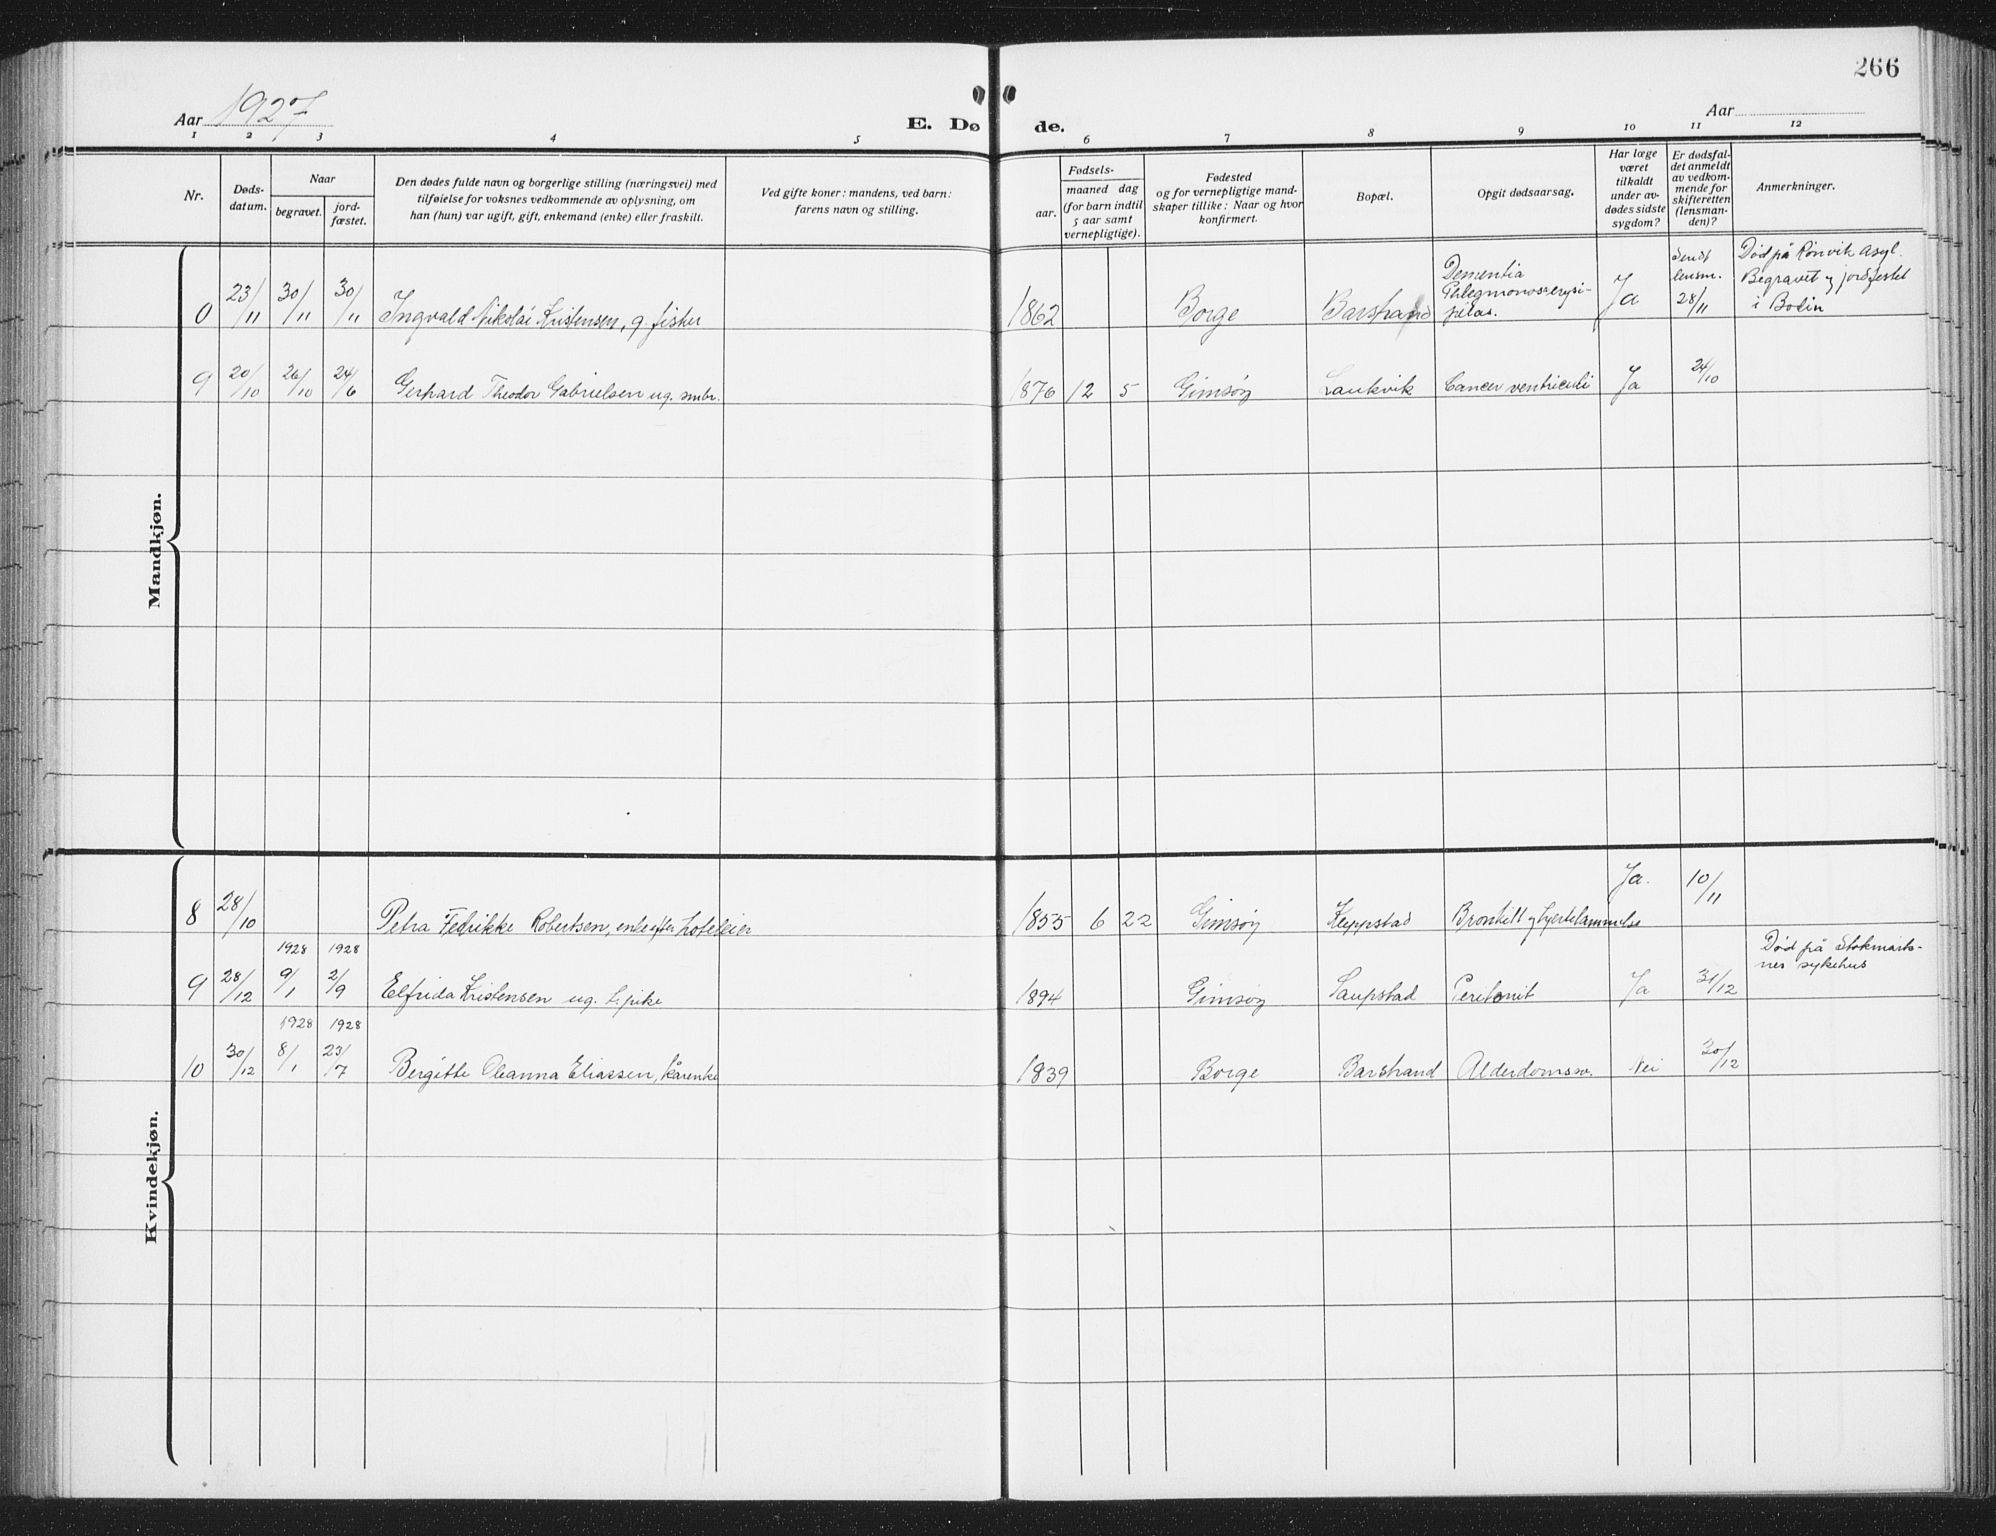 266
Aar 1927
E. Døde.
Aar
1 2 3 4 5 6 7 8 9 10 11 12
Nr.
Døds-
datum.
Naar
begravet.
jord-
fæstet.
Den dødes fulde navn og borgerlige stilling (næringsvei) med
tilføielse for voksnes vedkommende av oplysning, om
han (hun) var ugift, gift, enkemand (enke) eller fraskilt.
Ved gifte koner: mandens, ved barn:
farens navn og stilling.
Fødsels-
aar.
maaned dag
(for barn indtil
5 aar samt
vernepligtige).
Fødested
og for vernepligtige mand-
skaper tillike: Naar og hvor
konfirmert.
Bopæl.
Opgit dødsaarsag.
Har læge
været
tilkaldt
under av-
dødes sidste
sygdom?
Er dødsfal-
det anmeldt
av vedkom-
mende for
skifteretten
(lensman-
den)?
Anmerkninger.
Mandkjøn.
0 23/11 30/11 30/11 Ingvald Nikolai Kristensen, g. fisker 1862 Borge Barstrand
Dementia
Phlegmonoserysi-
pelas.
Ja
sendt
lensm.
28/11
Død på Rønvik Asyl.
Begravet og jordfestet
i Bodin
9 20/10 26/10 24/6 Gerhard Theodor Gabrielsen ug. smbr. 1876 12 5 Gimsøy Laukvik Cancer ventriculi Ja 24/10
Kvindekjøn.
8 28/10 Petra Fedrikke Robertsen, enke efter hoteleier 1855 6 22 Gimsøy Kleppstad Bronkitt og hjertelammelse Ja. 10/11
1928 1928
9 28/12 9/1 2/9 Elfrida Kristensen ug. t. pike 1894 Gimsøy Saupstad Peritonit Ja 31/12
Død på Stokmark-
nes sykehus
1928 1928
10 30/12 8/1 23/7 Bergitte Oleanna Eliassen, kårenke 1839 Borge Barstrand Alderdomssv. Nei 30/12